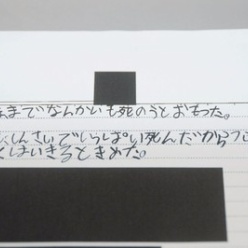 までなんかいも死のうとおもった。
しんさいでいっぱい死んだからつ
はいきるときめた。